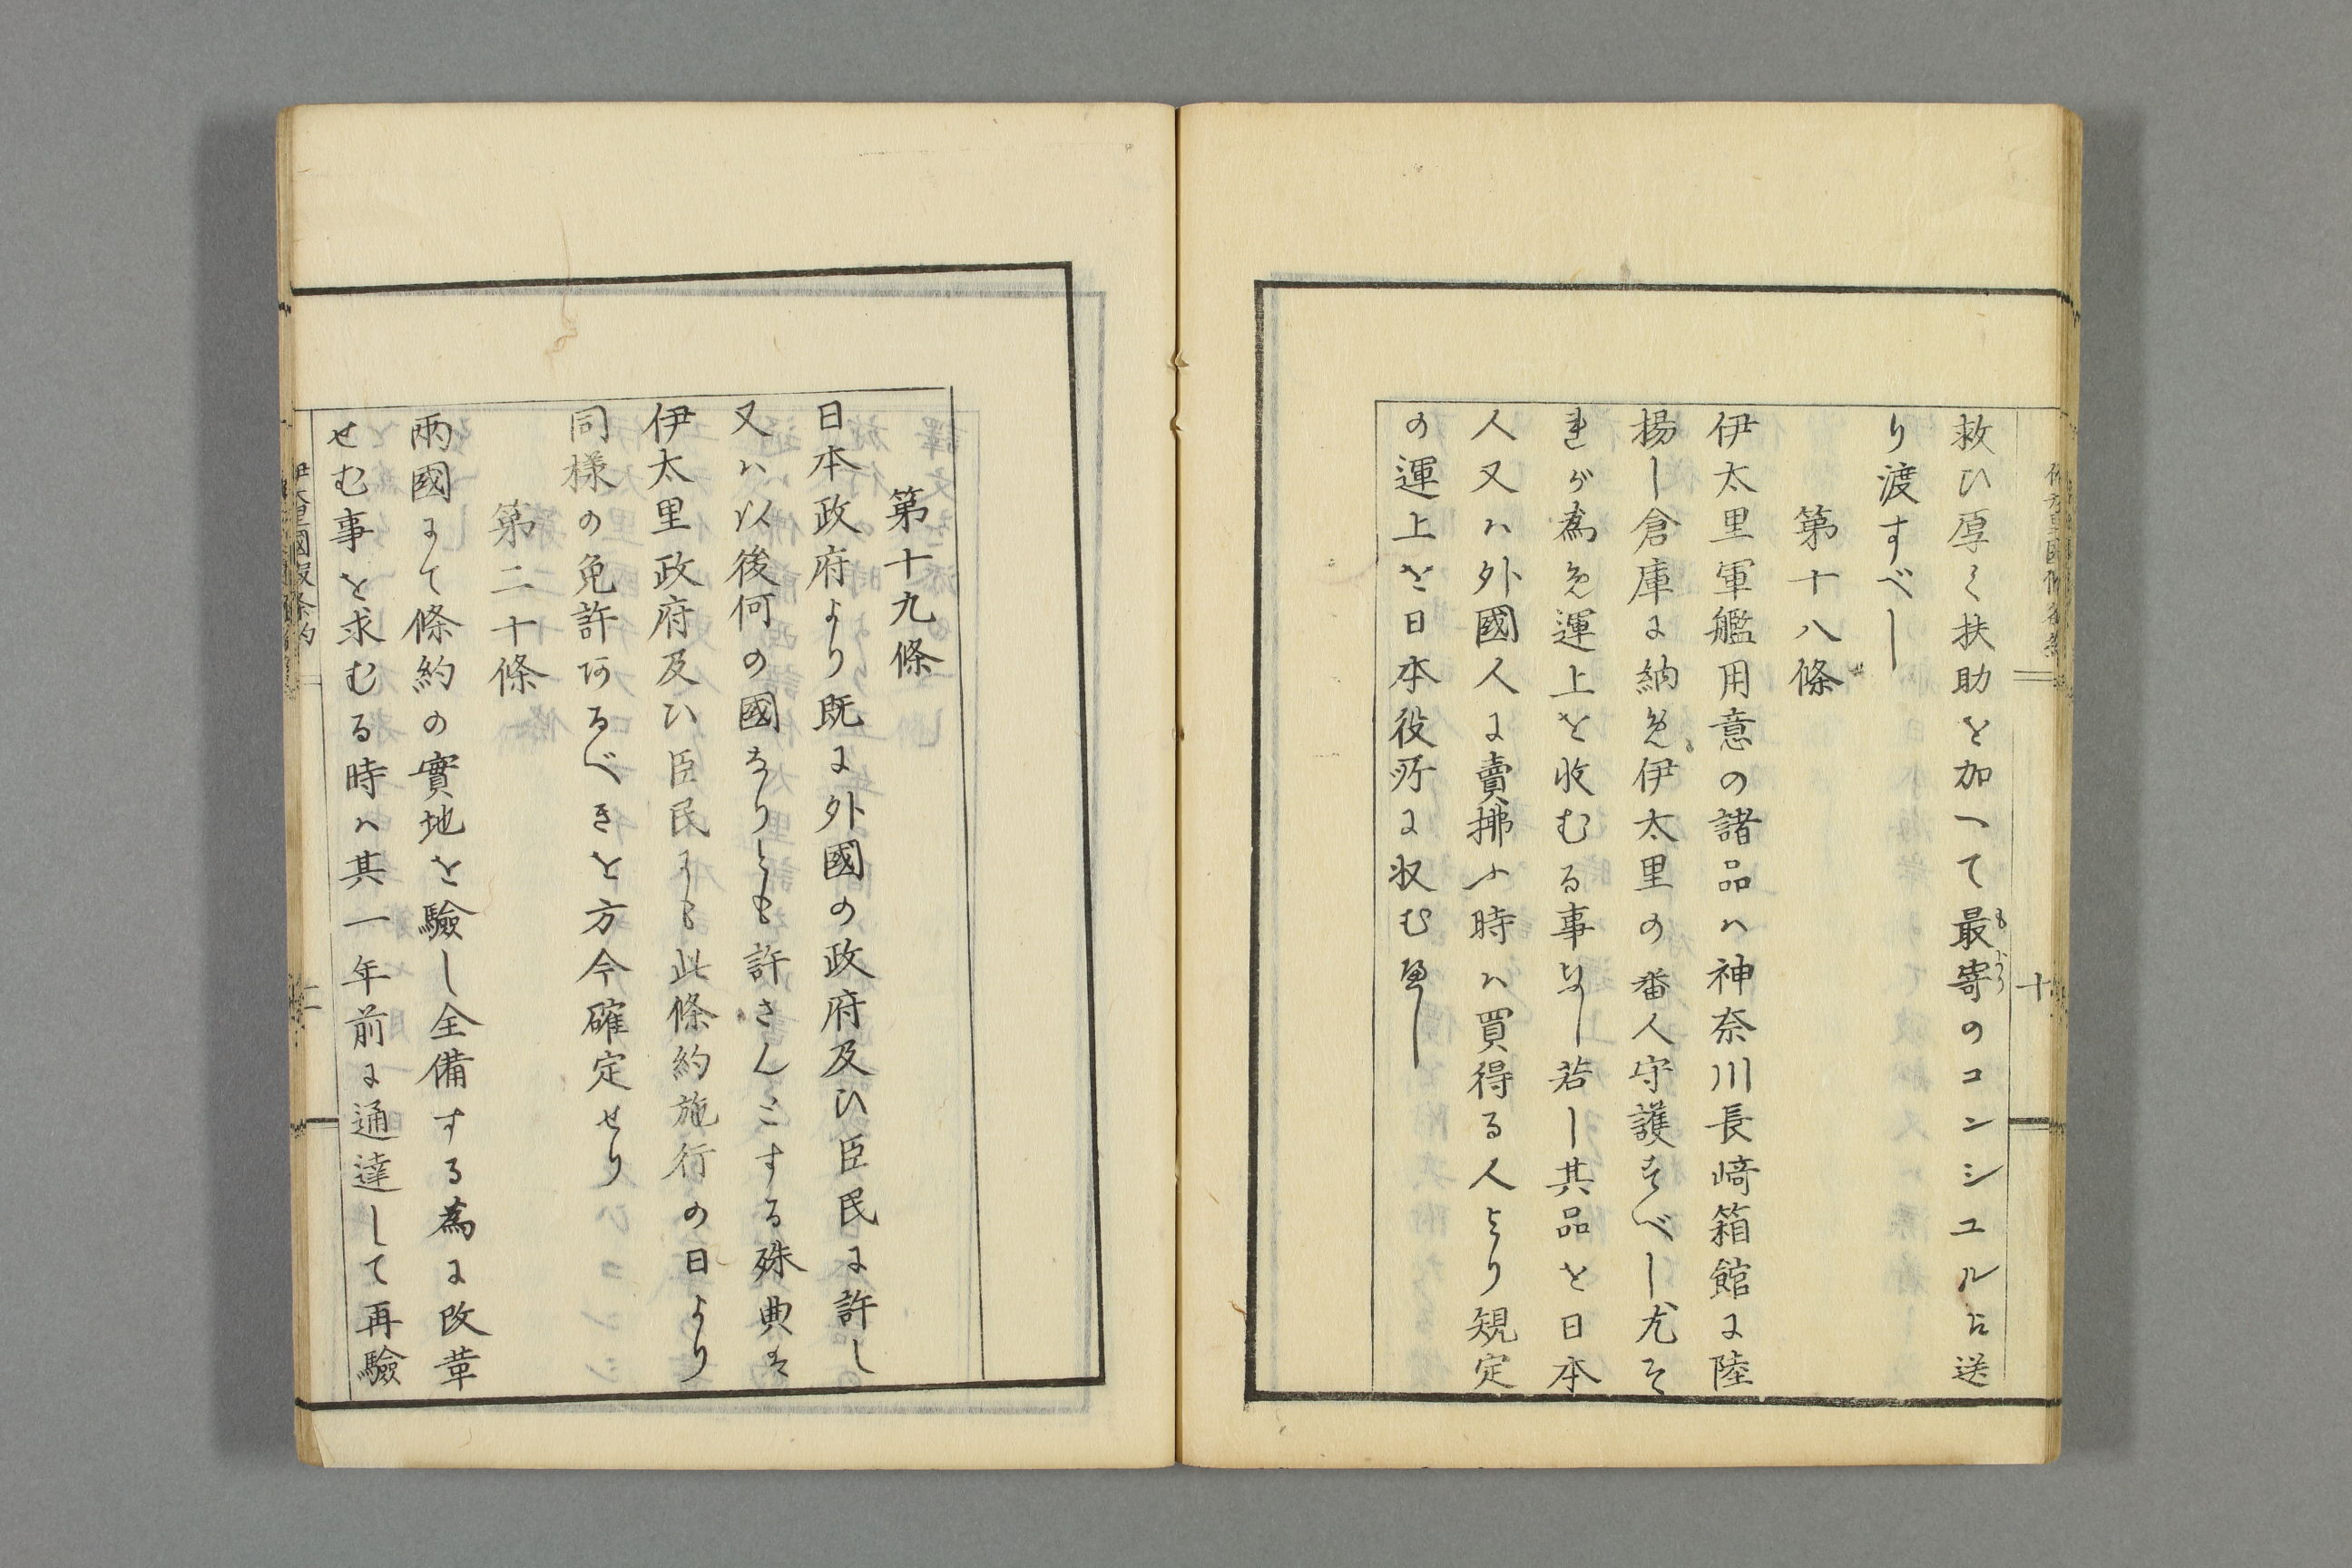 救ひ厚く扶助を加へて最寄のコンシユルに送
もより
り渡すべし
第十八條
伊太里軍艦用意の諸品ハ神奈川長﨑箱館に陸
揚し倉庫に納免伊太里の番人守護すべし尤そ
れが為免運上を收むる事なし若し其品を日本
人又ハ外國人に賣拂ふ時ハ買得る人より規定
の運上を日本役所に収むべし
十
第十九條
日本政府より既に外國の政府及ひ臣民に許し
又ハ以後何の國なりとも許さんとする殊典は
伊太里政府及ひ臣民にも此條約施行の日より
同様の免許阿るべきを方今確定せり
第二十條
兩國にて條約の實地を驗し全備する為に改革
せむ事を求むる時ハ其一年前に通達して再驗
伊太里國假条約